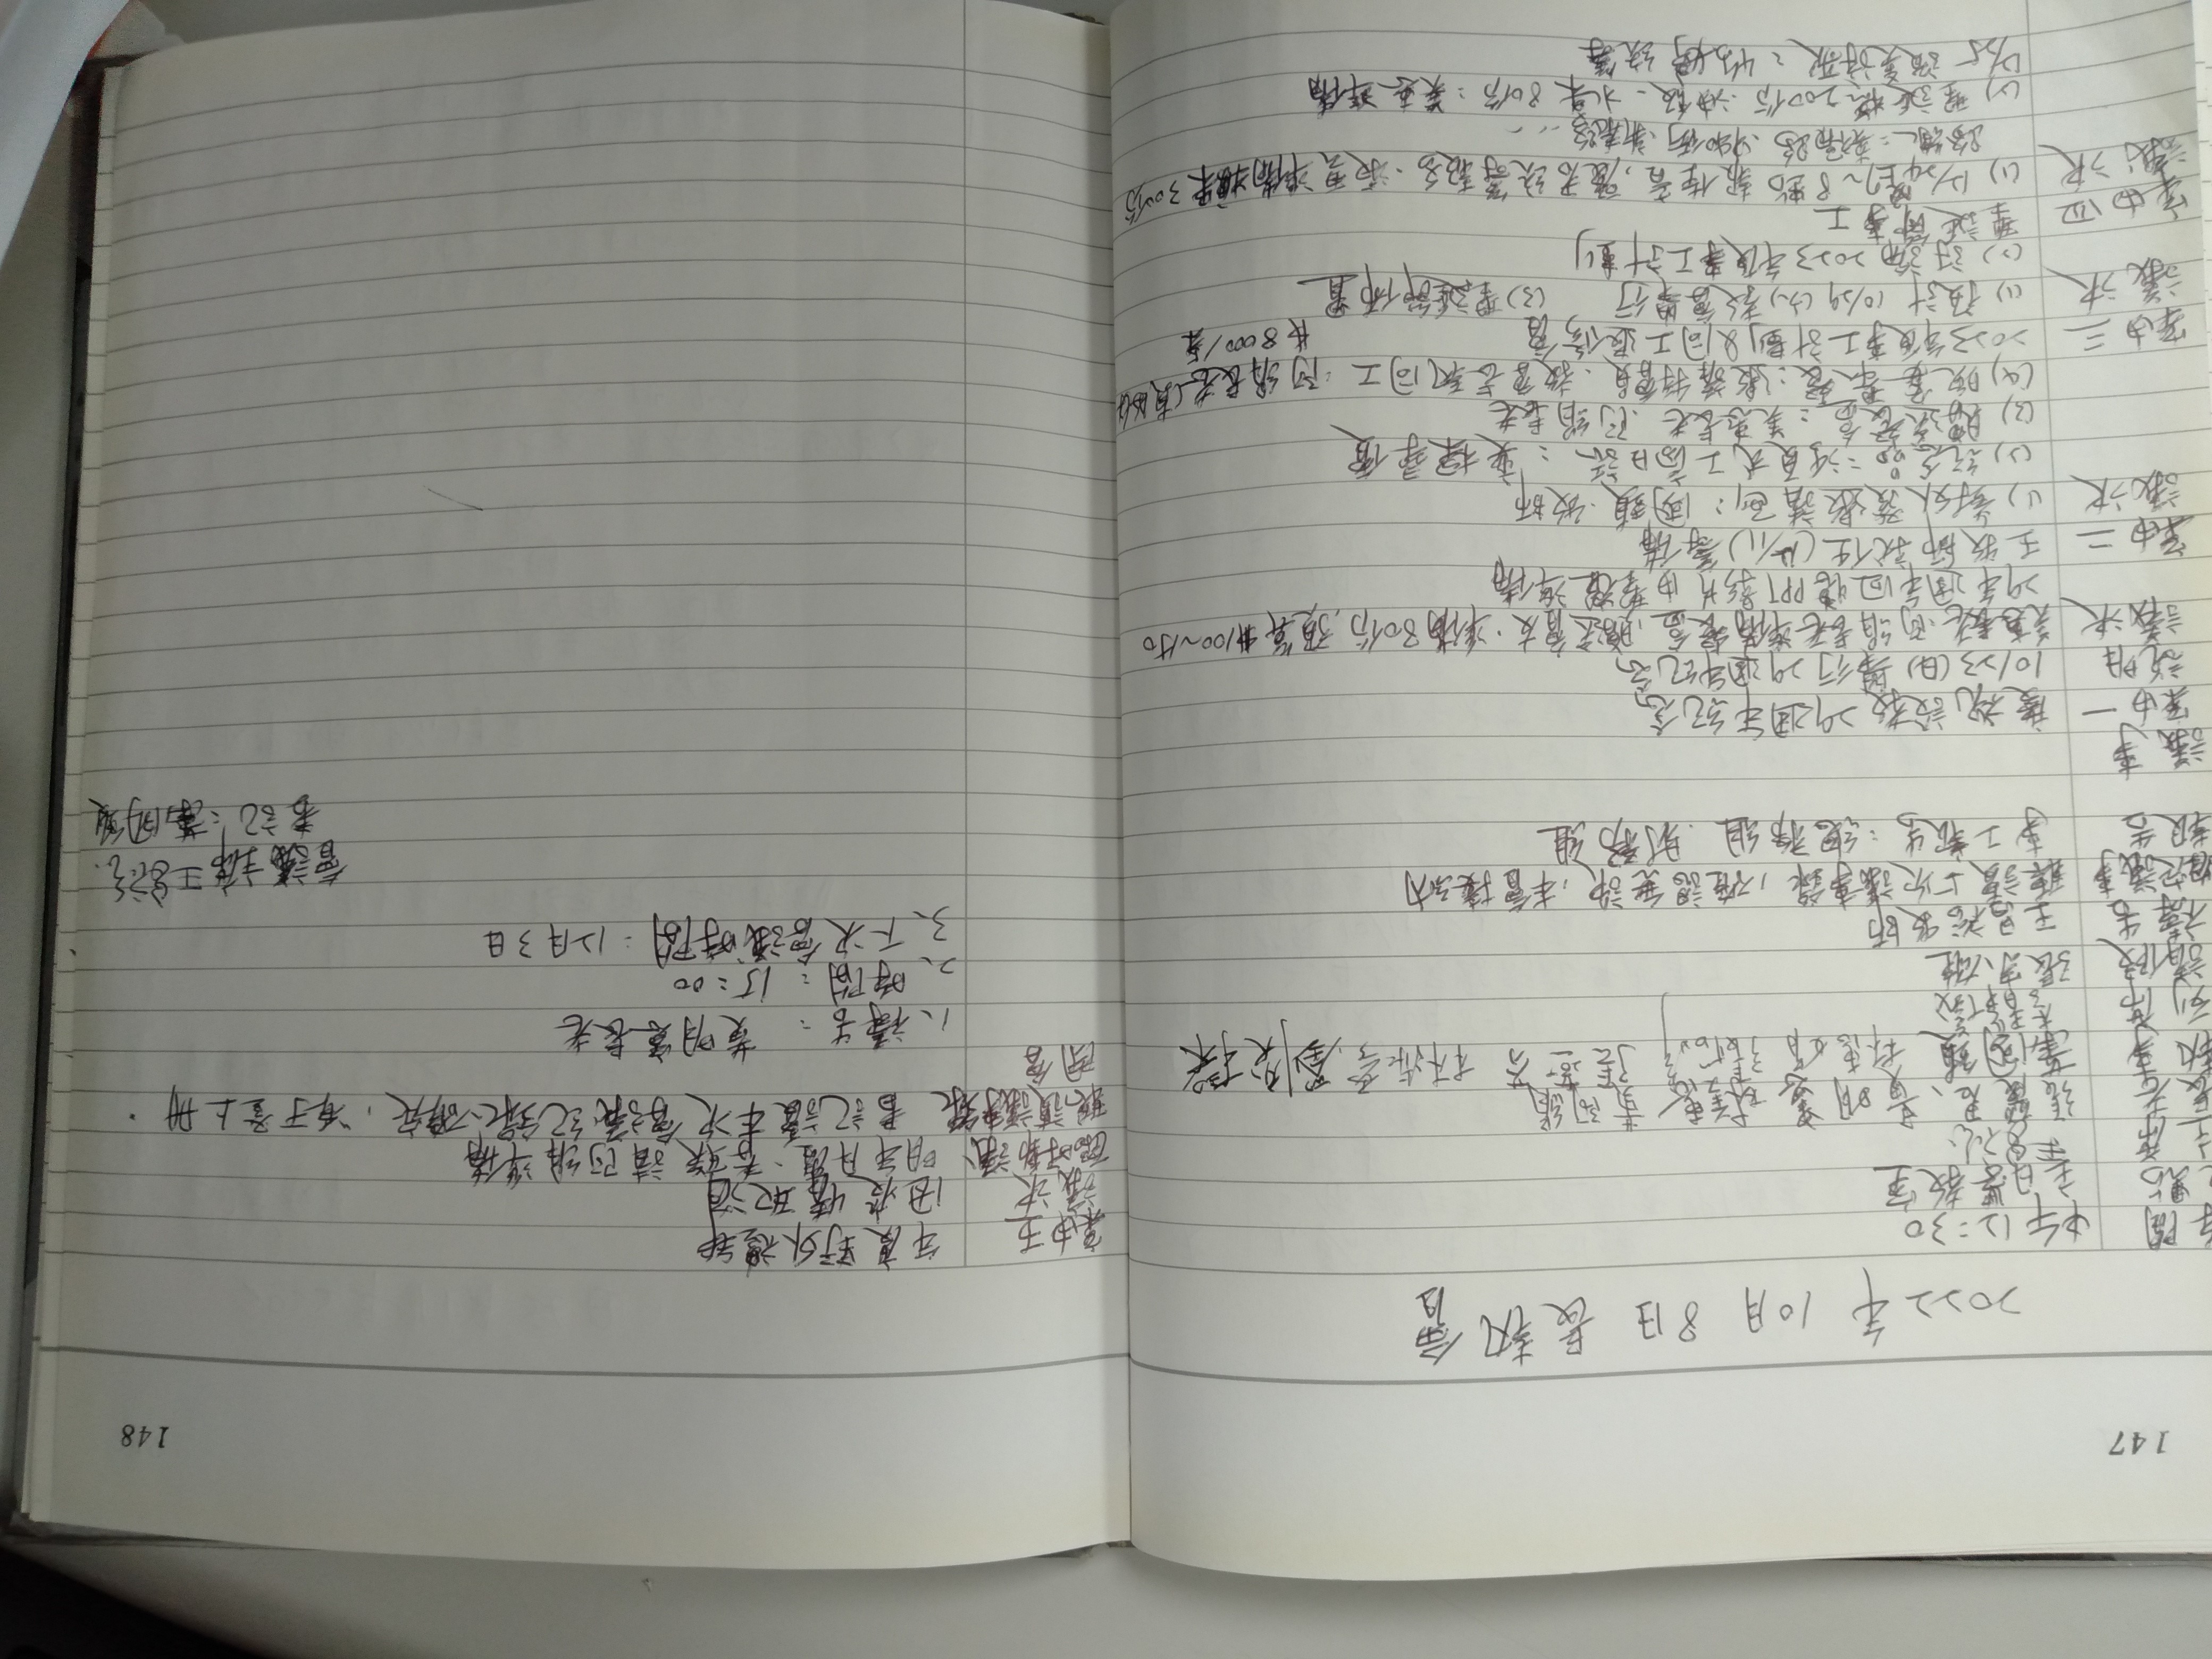 147
2022年 10月 8日 長執會
時間 中午12:30
地點 主日學教室
主席 王昌裕
長老 張麗君、黃明憲 林美惠 黃阿絹
執事 葉國鎮 林惠娟 張 張燕芬 林淑雲、劉奕樑
列席 李靜儀
請假 張宗雄
禱告 王昌裕牧師
確定議事 聽讀上次議事錄,確認無誤,本會接納
報告 事工報告:總務組、財務組
議事
案由一 慶祝設教29週年紀念
說明 10/23(日)舉行29週年紀念
議決 美惠長老、阿絹長老準備餐盒,贈送會友,準備80份,預算#100~150
29年週年回憶PPT影片由聖 準備
案由二 王牧師就任(12/11)籌備
議決 (1) 對外發邀請函:國鎮、牧師
(2) 紀念品:活頁式工商日誌:奕樑尋價
(3) 贈送餐盒:美惠長老、阿絹長老
(4) 晚宴聚餐:邀請特會員、教會長執同工:阿絹長老(負
#8000/桌
案由三 2023年度事工計劃&同工退修會
議決 (1) 預計10/29(六)教會舉行 (3)聖誕節佈置
(2) 討論2023年度事工計劃
案由四 聖誕節事工
議決 (1) 12/24晚上7~8點報佳音,麗君統籌報名、淑雲準備糖果300份
路線:美福路、中和街、新泰路...
(2) 聖誕糕200份、油飯、水果80份:美惠準備
12/25 讚美詩歌: 婷統籌
148
案由五 年度野外禮拜
議決 因疫情取消
臨時動議 明年月曆、春聯請阿絹準備
聽讀議事錄 書記讀本次會議紀錄、確定,准予登上冊。
閉會
1、禱告:黃明憲長老
2、時間:15:00
3、下次會議時間:12月3日
會議主席 王昌裕
書記:葉國鎮